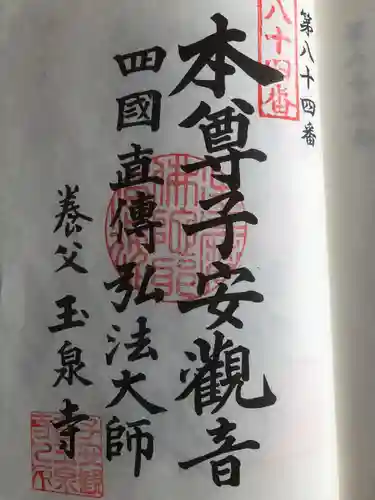 第八十四番
八十四番
本尊子安觀音
四國直傳弘法大師
養父玉泉寺